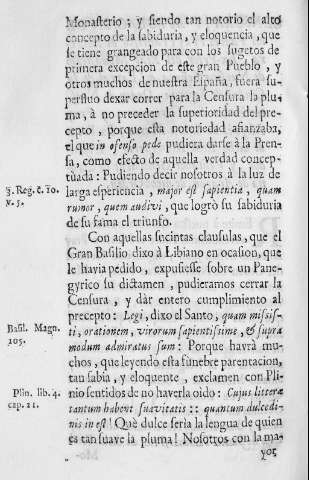 Monasterio; y siendo tan notorio el alto
concepto de la sabiduria, y eloquencia, que
se tiene grangeado para con los sugetos de
primera excepcion de este gran Pueblo, y
otros muchos de nuestra España, fuera su-
perfluo dexar correr para la Censura la plu-
ma, à no preceder la superioridad del pre-
cepto, porque esta notoriedad afianzaba,
el que in ofenso pede pudiera darse à la Pren-
sa, como efecto de aquella verdad concep-
tuada: Pudiendo decir nosotros à la luz de
3. Reg. c. 10.
v. 5.
larga esperiencia, major est sapientia, quam
rumor, quem audivi, que logrò su sabiduria
de su fama el triunfo.
Con aquellas sucintas clausulas, que el
Gran Basilio dixo à Libiano en ocasion, que
le havia pedido, expusiesse sobre un Pane-
gyrico su dictamen, pudieramos cerrar la
Censura, y dàr entero cumplimiento al
precepto: Legi, dixo el Santo, quam missis-
Basil. Magn.
105.
ti, orationem, virorum sapientissime, & supra
modum admiratus sum: Porque havrà mu-
chos, que leyendo esta funebre parentacion,
tan sabia, y eloquente, exclamen con Pli-
Plin. lib. 4.
cap. 21.
nio sentidos de no haverla oìdo: Cujus litteræ
tantum habent suavitatis:: quantum dulcedi-
nis in est! Què dulce serìa la lengua de quien
es tan suave la pluma! Nosotros con la ma-
yor